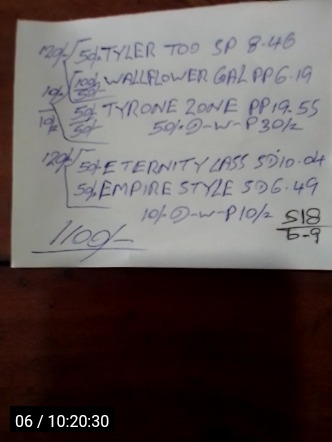 120/- 50/- TYLER TOO SP 8.46
10/- 100/- 50/- WALLFLOWER GAL PP 6.19
10/- 50/- 50/- TYRONE ZONE PP 19.55
50/- D-W-P 30/-
120/- 50/- ETERNITY LASS SD 10.04
50/- EMPIRE STYLE SD 6.49
10/- D-W-P 10/-
1100/-
S18
6-9
06 / 10:20:30